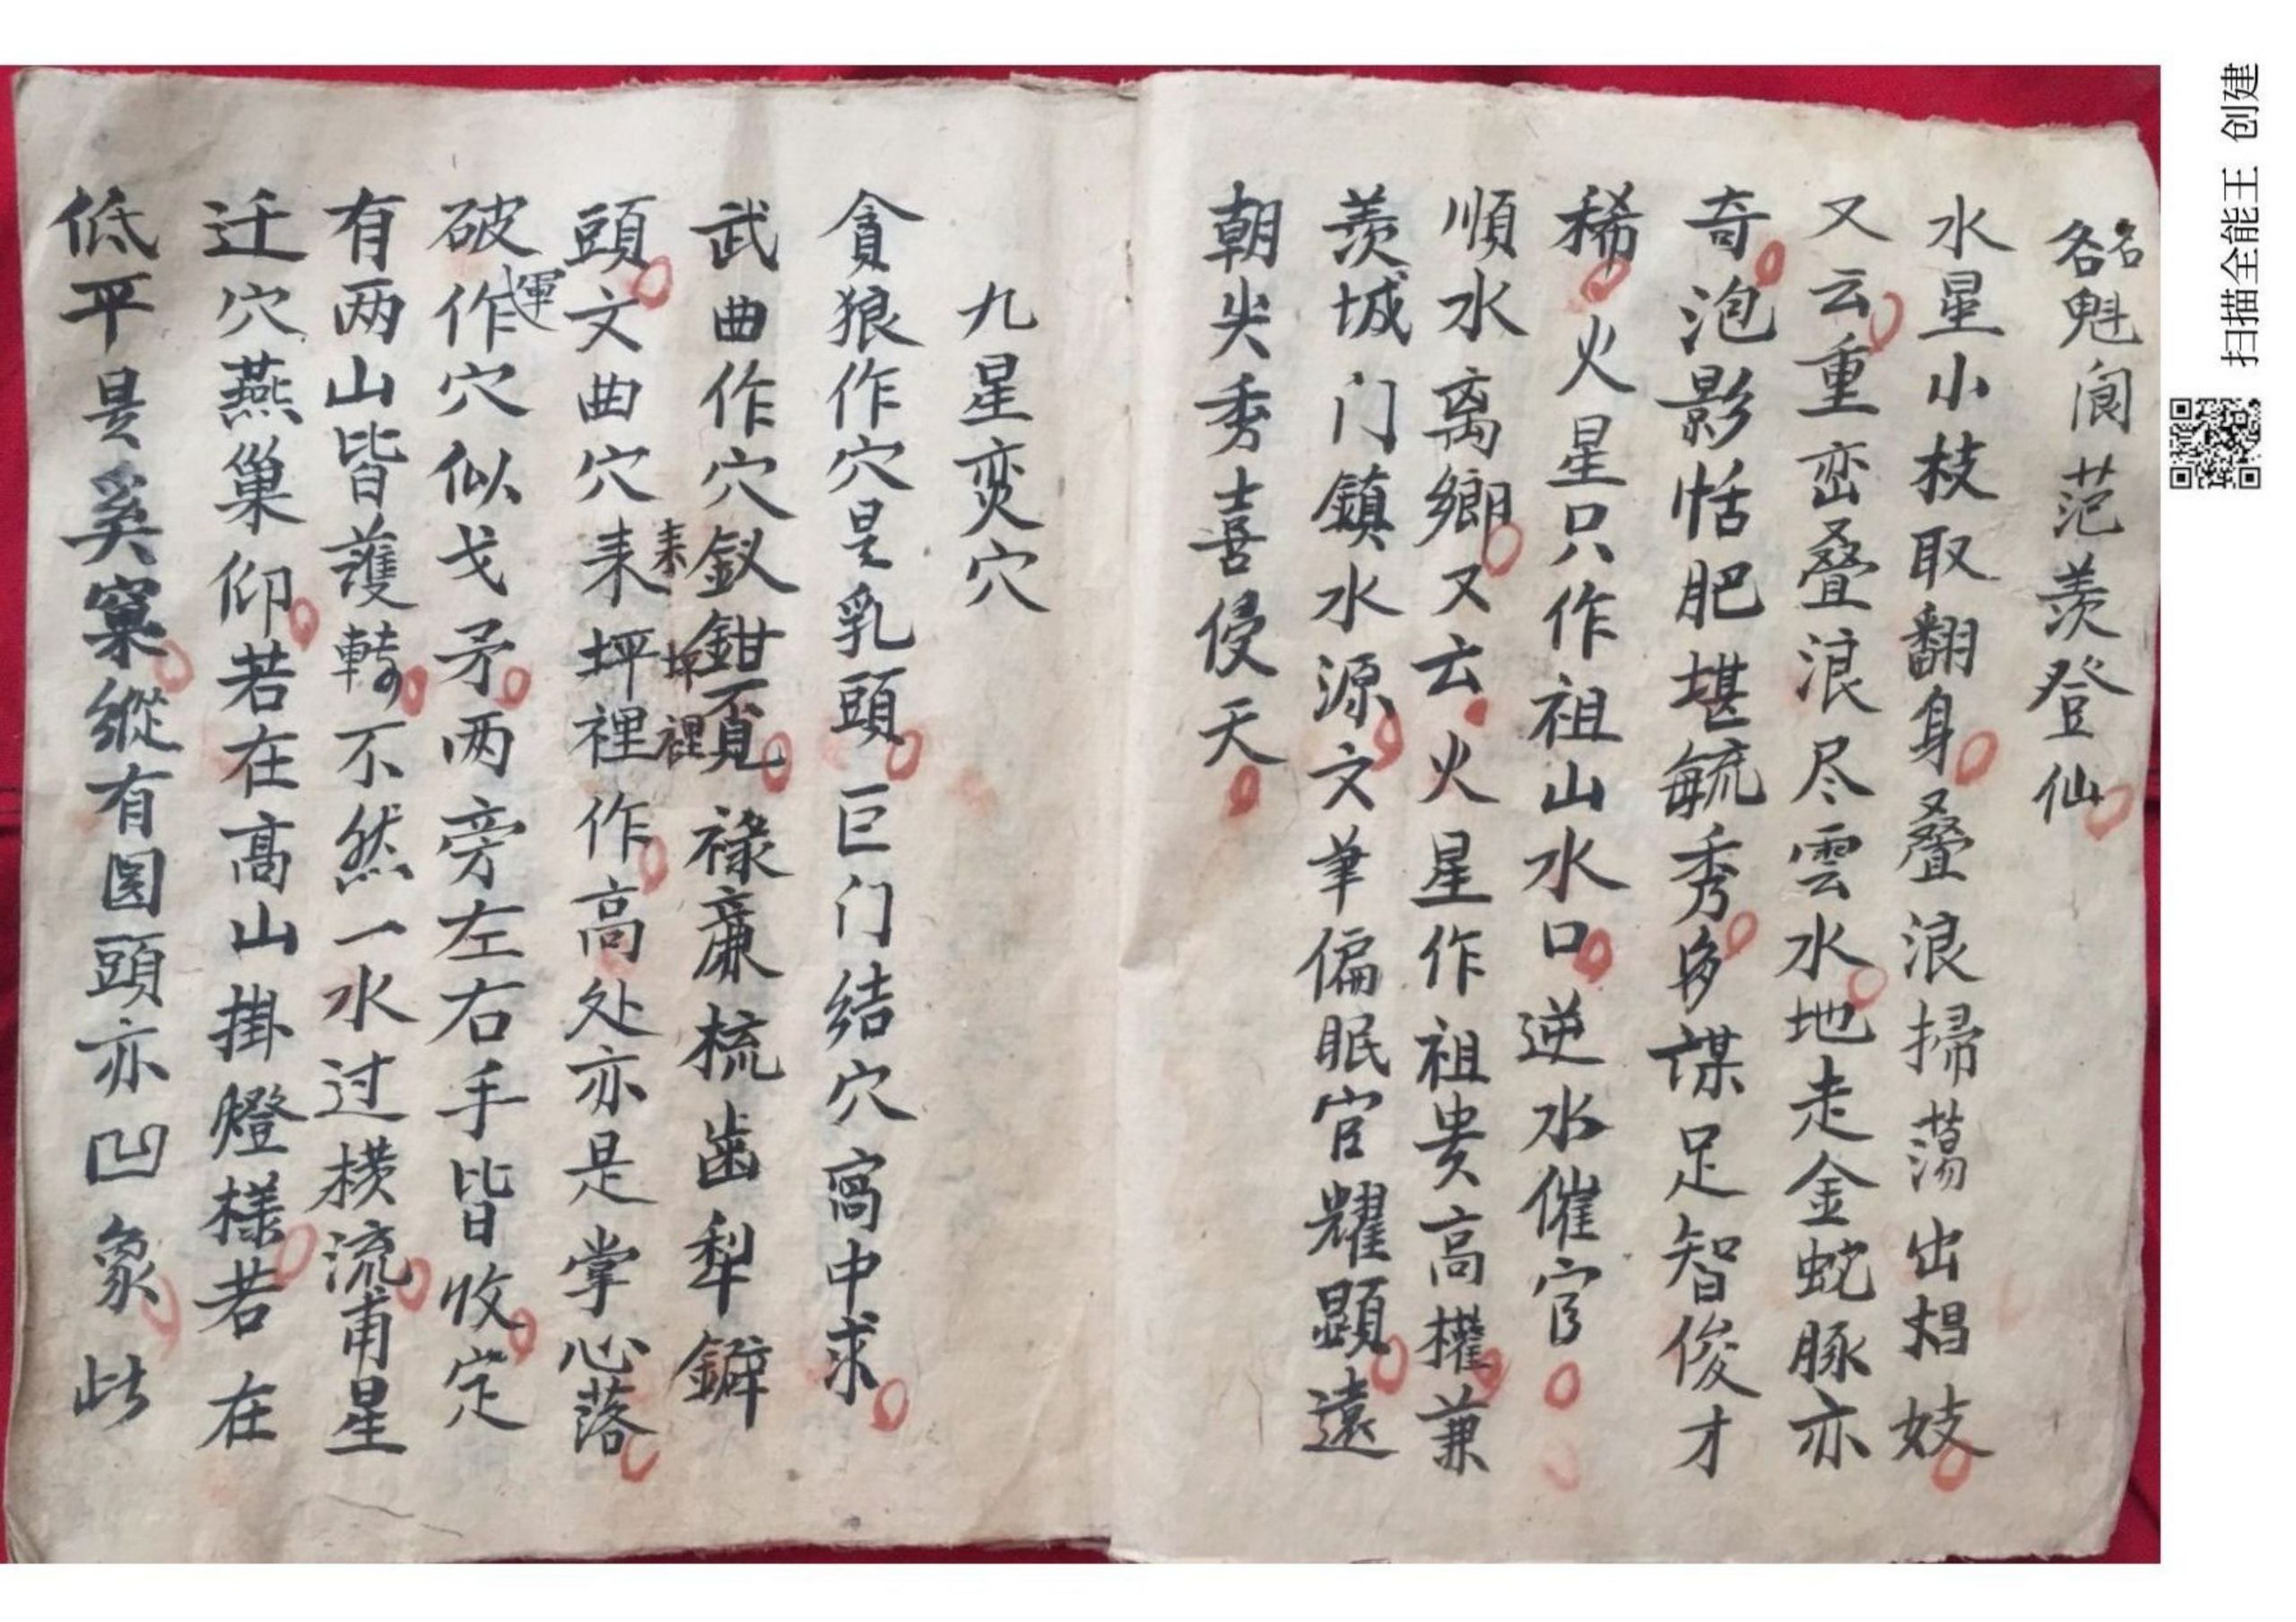 各名魁閬范羨登仙
水星小枝取翻身叠浪掃蕩出娼妓
又云重峦叠浪尽雲水地走金蛇豚亦
奇泡影恬肥堪毓秀多謀足智俊才
稀火星只作祖山水口逆水催官
順水离鄉又云火星作祖贵高權兼
羨城门鎮水源文筆偏眠官耀顕遠
朝尖秀喜侵天
九星变穴
貪狼作穴是乳頭巨门结穴窩中求
武曲作穴釵鉗覔禄廉梳齒犁鐴
頭文曲穴耒坪裡作高处亦是掌心落
耒坪裡
破作穴似戈矛两旁左右手皆收定
運
有两山皆護轉不然一水过横流甫星
迁穴燕巢仰若在高山掛燈樣若在
低平是奚窠縱有圆頭亦凹象此
扫描全能王 创建